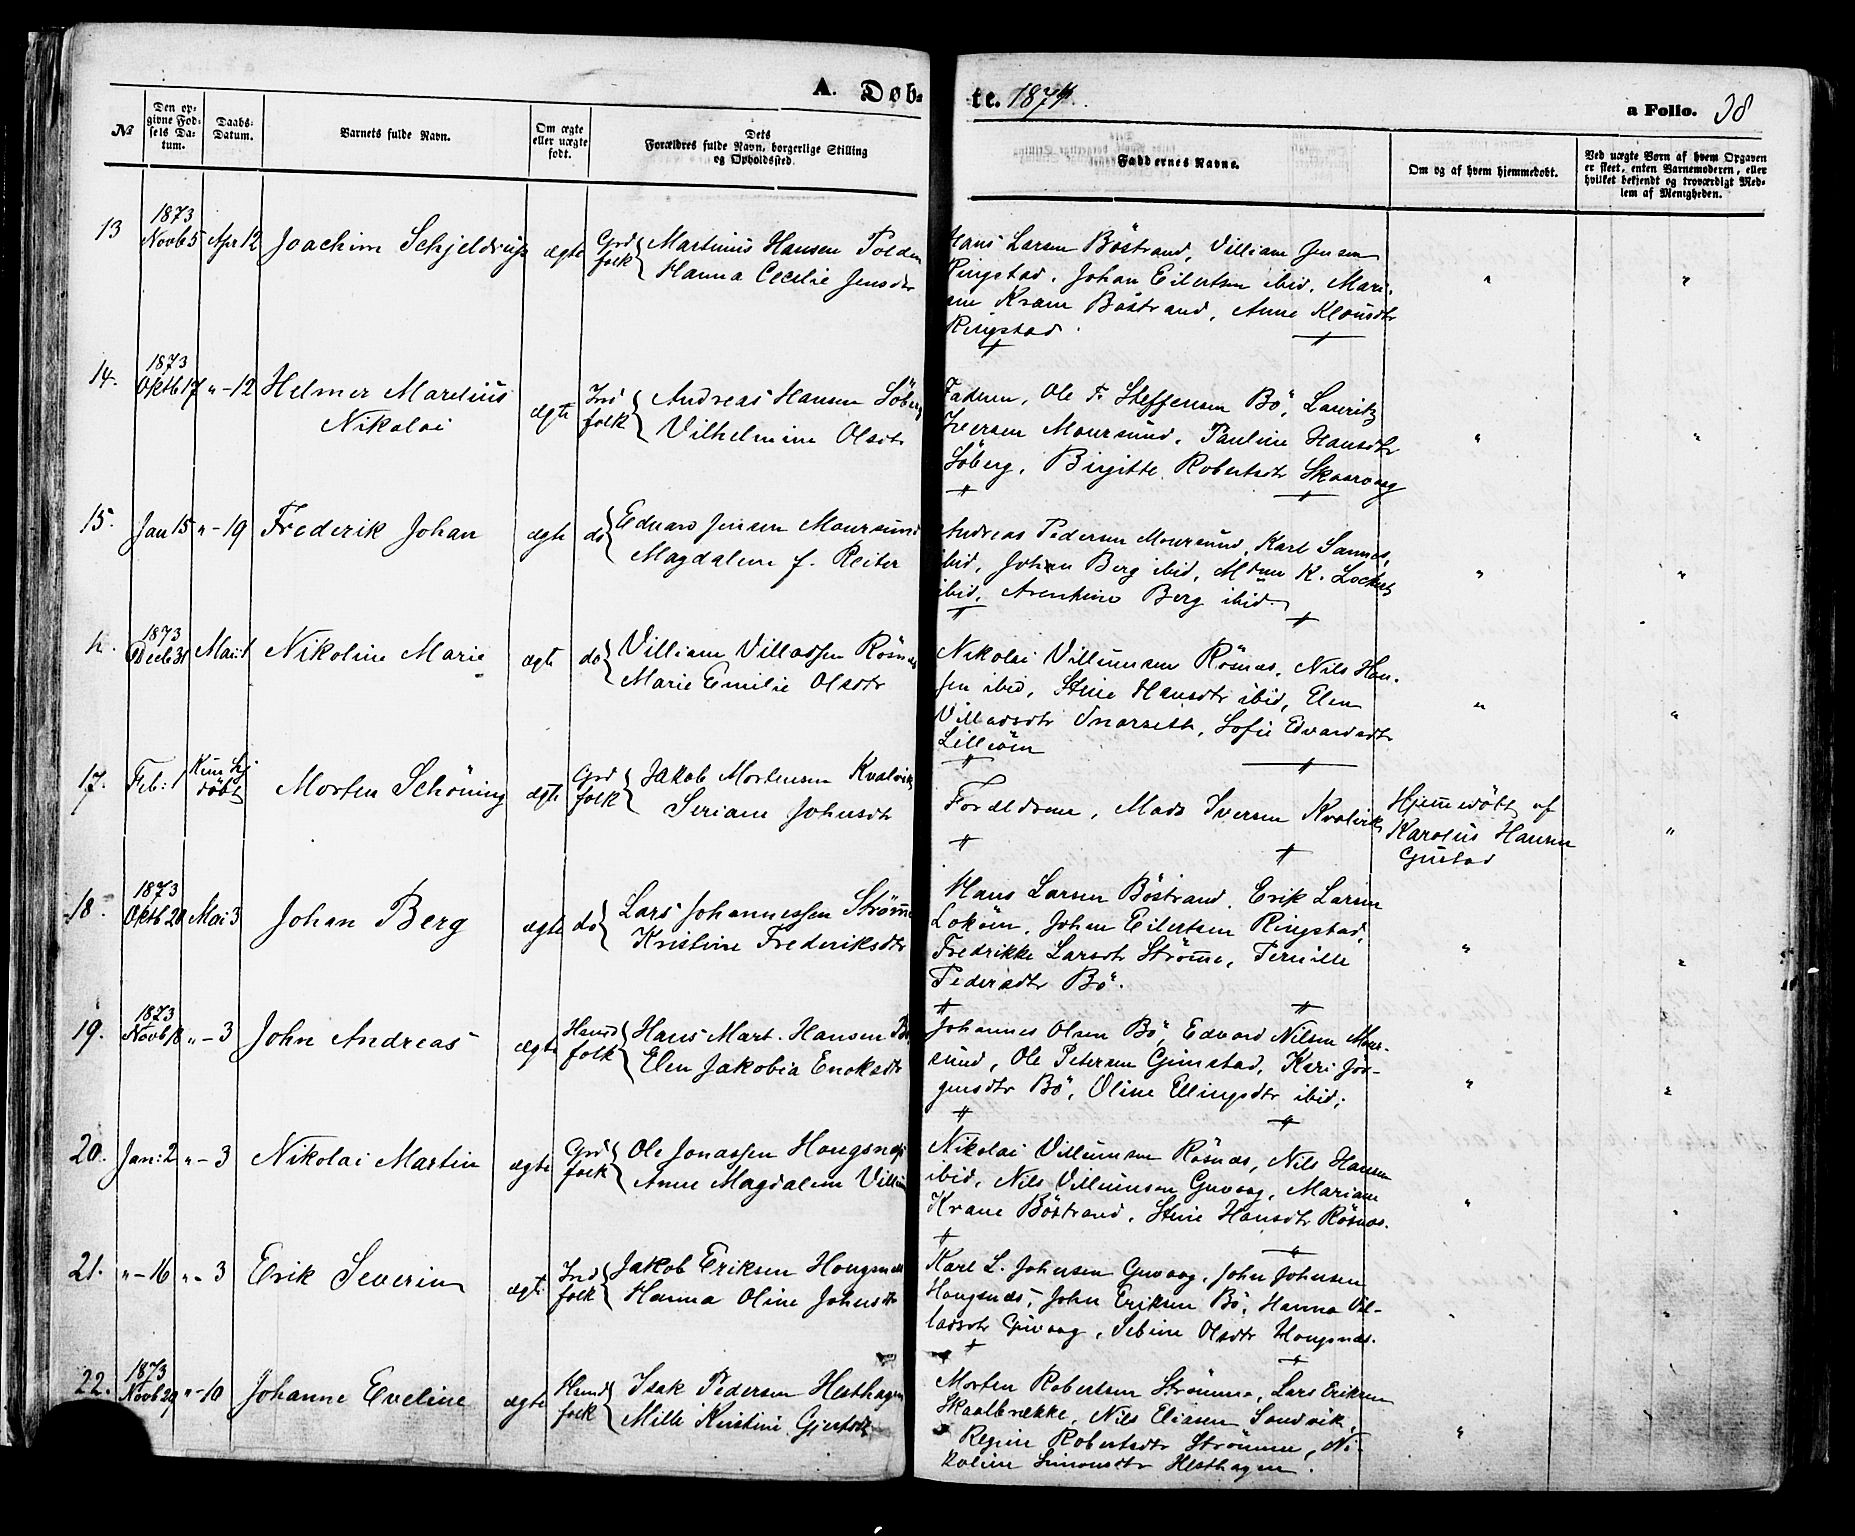 A. Døb-
te. 1874.
a Folio. 38
No
Den op-
givne Fød-
sels Da-
tum.
Daabs-
Datum.
Barnets fulde Navn.
Om ægte
eller uægte
født.
Dets
Forældres fulde Navn, borgerlige Stilling
og Opholdssted.
Faddernes Navne.
Om og af hvem hjemmedøbt.
Ved uægte Børn af hvem Opgaven
er skeet, enten Barnemoderen, eller
hvilket bekjendt og troværdigt Med-
lem af Menigheden.
13 1873 Novb 5 Apr 12 Joachim Schjeldrup ægte Grd folk
Martinus Hansen Polden
Hanna Cecilie Jensdtr
Hans Larsen Böstrand, Villiam Jensen
Ringstad, Johan Eilertsen ibid, Mari-
ane Krane Böstrand, Anne Klausdtr
Ringstad.
14. 1873 Oktb 17 " - 12 Helmer Marelius
Nikolai
ægte Ind folk
Andreas Hansen Söberg
Vilhelmine Olsdtr
Faderen, Ole F. Steffensen Bö, Lauritz
Iversen Moursund, Pauline Hansdtr
Söberg, Birgitte Robertsdtr Skaarvaag
15. Jan 15 " - 19 Frederik Johan ægte do
Edvard Jensen Moursund
Magdalene f. Reiter
Andreas Pedersen Moursund, Karl Sannes
ibid, Johan Berg ibid, Mdme K. Lockert
ibid, Arentine Berg ibid.
1873 Decb 31 Mai: 1 Nikoline Marie ægte do
Villiam Villassen Rösnæs
Marie Emilie Olsdtr
Nikolai Villumsen Rösnæs, Nils Han-
sen ibid, Stine Hansdtr ibid, Elen
Villadsdtr Snarseth, Sofie Edvardsdtr
Lilliöen
17. Feb: 1 Kun hj
döbt
Morten Schöning ægte Grd folk
Jakob Mortensen Kvalvik
Seriane Johnsdtr
Forældrene, Mads Iversen Kvalvik
Hjemmedöbt af
Karolus Hansen
Gustad
18. 1873 Oktb 20 Mai 3 Johan Berg ægte do
Lars Johannessen Strömme
Kristine Frederiksdtr
Hans Larsen Böstrand, Erik Larsen
Loköen, Johan Eilertsen Ringstad,
Fredrikke Larsdtr Strömme, Pernille
Pedersdtr Bö.
19. 1873 Novb 18 " - 3 John Andreas ægte Husmd folk
Hans Mart. Hansen Bö
Elen Jakobia Enoksdtr
Johannes Olsen Bö, Edvard Nilsen Mour-
sund, Ole Petersen Gimstad, Kari Jör-
gensdtr Bö, Oline Ellingsdtr ibid;
20. Jan: 2 " - 3 Nikolai Martin ægte Grd folk
Ole Jonassen Hougsnæs
Anne Magdalene Villum
Nikolai Villumsen Rösnæs, Nils Hansen
ibid, Nils Villumsen Guvaag, Mariane
Krane Böstrand, Stine Hansdtr Rösnæs.
21. " - 16 " - 3 Erik Severin ægte Ind folk
Jakob Eriksen Hougsnæs
Hanna Oline Johnsdtr
Karl L. Johnsen Guvaag, John Johnsen
Hougsnæs, John Eriksen Bö, Hanna Vil-
ladsdtr Guvaag, Sebine Olsdtr Hougsnæs.
22. 1873 Novb 29 " - 10 Johanne Eveline ægte Husmd folk
Isak Pedersen Hesthagen
Mille Kirstine Gjertsdtr
Morten Robertsen Strömme, Lars Eriksen
Skaalbrække, Nils Eliasen Sandvik,
Regine Robertsdtr Strömme, Ni-
koline Simonsdtr Hesthagen.